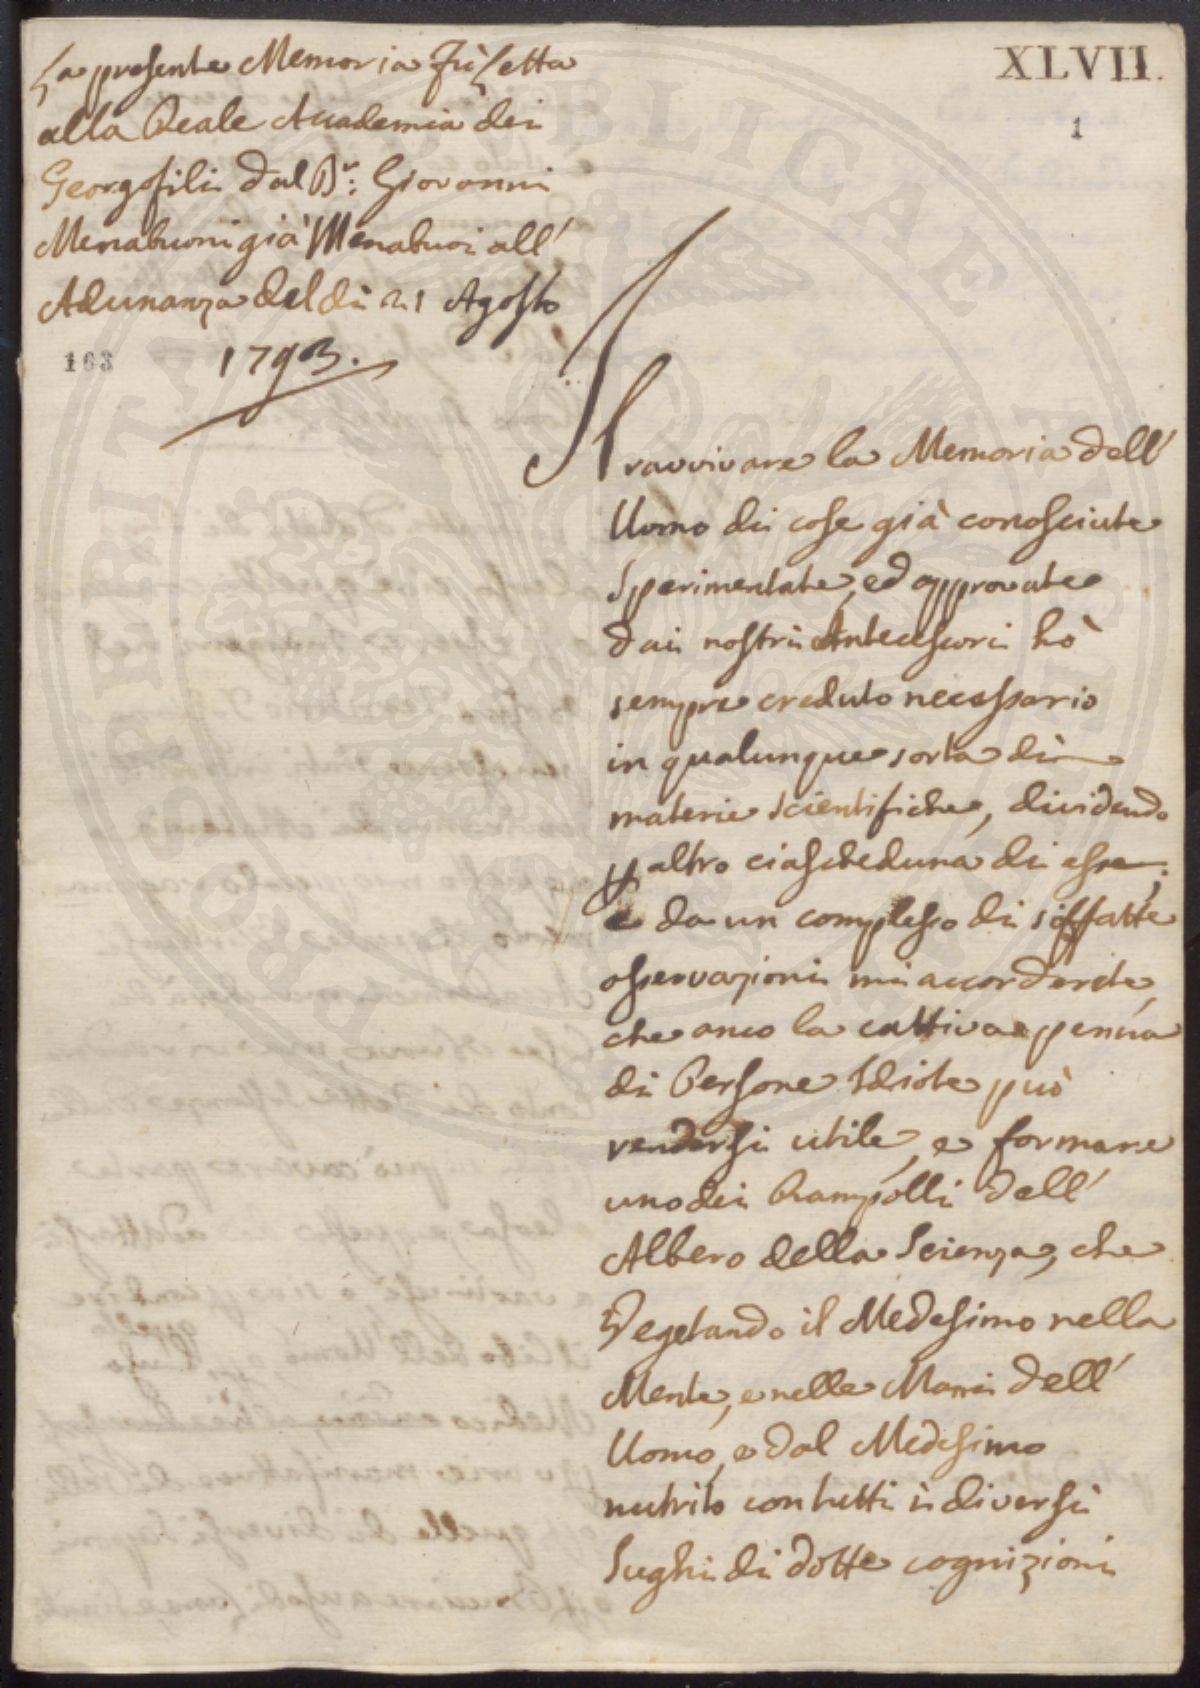 La presente Memoria Fù Letta
alla Reale Accademia dei
Georgofili dal Dr: Giovanni
Menabuoni già Menabuoi all'
Adunanza del dì 21 Agosto
1793.
163
XLVII.
1
Il ravvivare la Memoria dell'
Uomo di cose già conosciute
Sperimentate, ed approvate
dai nostri Antecessori hò
sempre creduto necessario
in qualunque sorta di
materie scientifiche, dividendo
p altro ciascheduna di esse;
e da un complesso di siffatte
osservazioni mi accorderete
che anco la cattiva penna
di Persone Idiote può
rendersi utile, e formare
uno dei Rampolli dell'
Albero della Scienza, che
Vegetando il Medesimo nella
Mente, e nelle Mani dell'
Uomo, e dal Medesimo
nutrito con tutti i diversi
Sughi di dotte cognizioni
PROSPERITATI PUBLICAE AUGENDAE